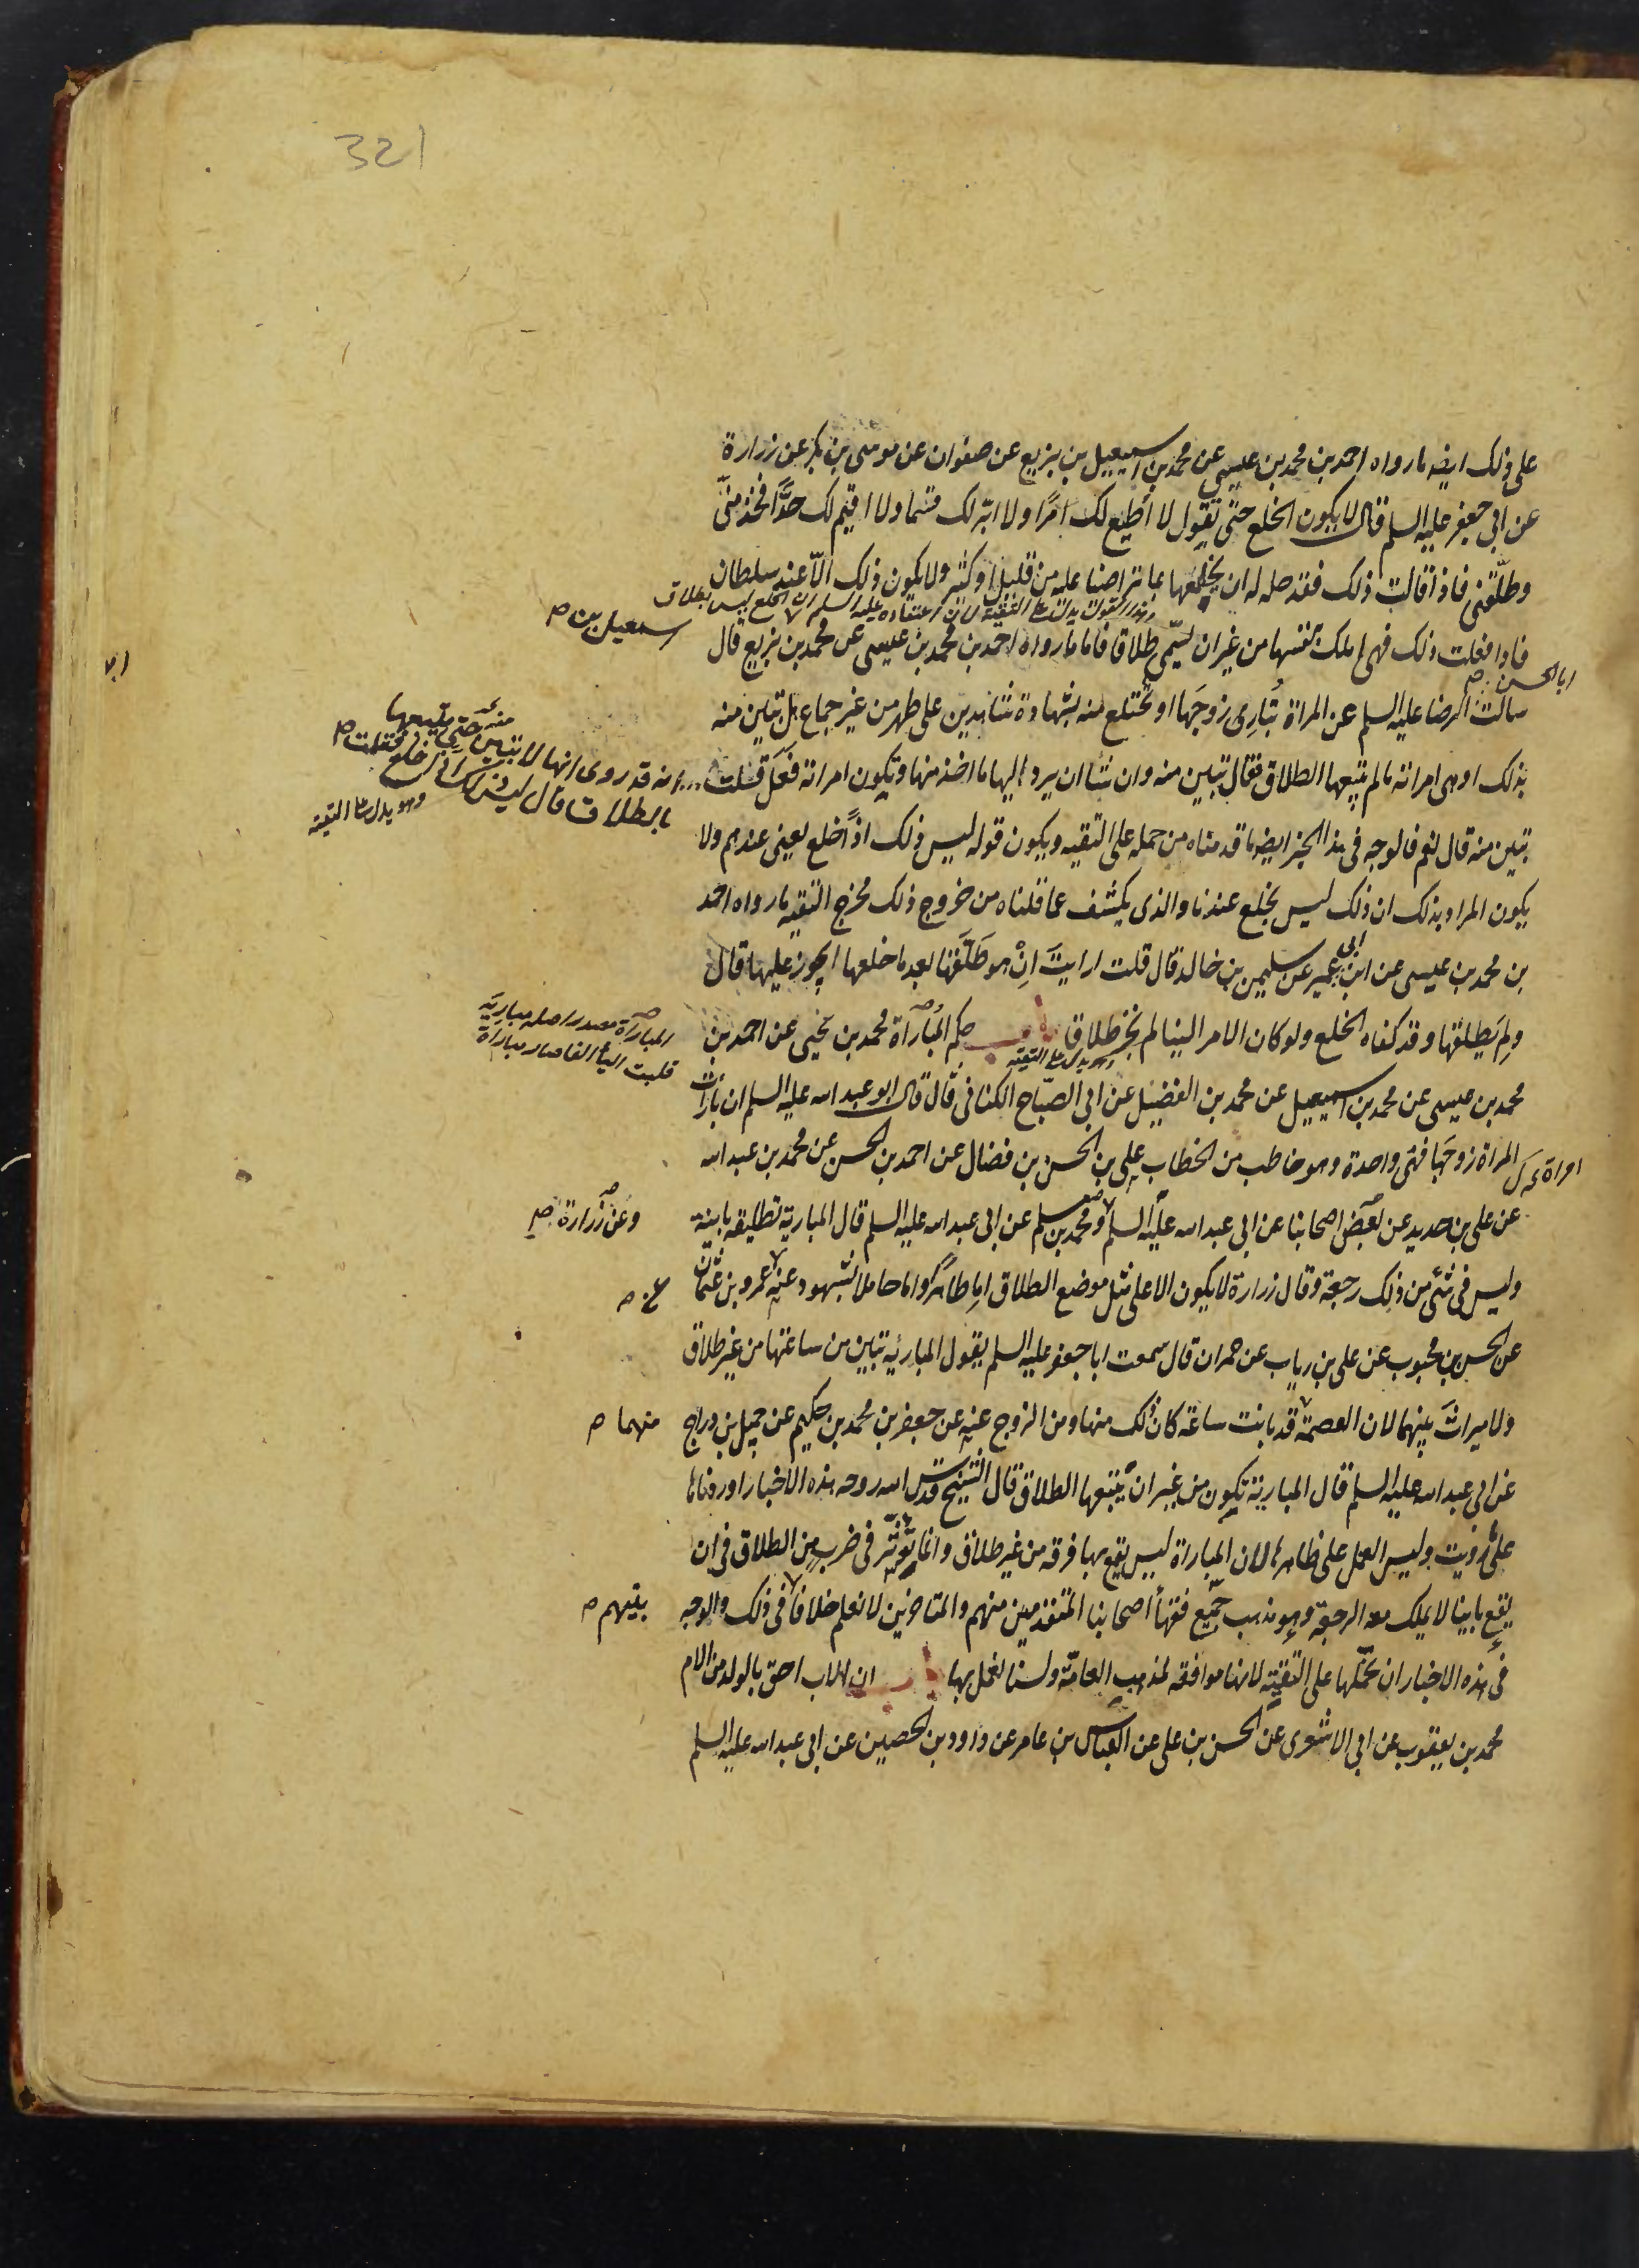 321
على ذلك ايضه مارواه احمد بن محمد بن عيسى عن محمد بن اسمعيل بن بزيع عن صفوان عن موسى بن بكر عن زرارة
عن ابي جعفر عليه السلم قال لا يكون الخلع حتى تقول لا اطيع لك امرًا ولا ابرّ لك قسما ولا اقيم لك حدًّا فخذ منّى
وطلّقنى فاذا قالت ذلك فقد حل له ان يخلعها بما تراضيا عليه من قليل او كثير ولا يكون ذلك الّا عند سلطان
عليه السلم ان الخلع ليس بطلاق
اسمعيل بن ص
فاذا فعلت ذلك فهى املك بنفسها من غير ان يسمّى طلاقا فاما مارواه احمد بن محمد بن عيسى عن محمد بن بزيع قال
ابا الحسن ص
سالت الرضا عليه السلم عن المراة تُبارِى زوجَها او تختلع منه بشهادة شاهدين على طهر من غير جماع هل تبين منه
بذلك او هى امراته مالم يتبعها الطلاق فقال تبين منه وان شا ان يرد اليها ما اخذ منها وتكون امراته فعَل قلت
انه قد روى انها لا تبين منه حتى يتبعها
بالطلاق قال ليس ذلك اذا خلع فقلت ص
وهو يدل على التقية
تبين منه قال نعم فالوجه فى هذا الخبر ايضه ما قدمناه من حمله على التقيه ويكون قوله ليس ذلك اذًا خلع يعنى عندهم ولا
يكون المراد بذلك ان ذلك ليس بخلع عندنا والذى يكشف عما قلناه من خروج ذلك مخرج التقيه مارواه احمد
بن محمد بن عيسى عن ابن ابى عمير عن سليمن بن خالد قال قلت ارايتَ اِنْ هو طَلّقَها بعد ما خلعها ايجوز عليها قال
ولِمَ يطلقها وقد كفاه الخلع ولو كان الامر الينا لم نجز طلاقا باب حكم المُبارأة محمد بن يحيى عن احمد بن
المباراة مصدر اصله مبارية
قلبت اليا الفا فصار مباراة
محمد بن عيسى عن محمد بن اسمعيل عن محمد بن الفضيل عن ابى الصبّاح الكنانى قال قال ابو عبد الله عليه السلم ان بارأت
امراة
المراة زوجَها فهى واحدة وهو خاطب من الخطاب على بن الحسن بن فضال عن احمد بن الحسن عن محمد بن عبد الله
عن على بن حديد عن بعض اصحابنا عن ابى عبد الله عليه السلم ومحمد بن مسلم عن ابى عبد الله عليه السلم قال المبارية تطليقه باينة
وعن زرارة ص
وليس فى شئ من ذلك رجعة وقال زرارة لا يكون الا على مثل موضع الطلاق اما طاهرًا واما حاملا بشهود عنه عمرو بن عثمان
عن ص
عن الحسن بن محبوب عن على بن رياب عن حمران قال سمعت ابا جعفر عليه السلم يقول المبارئه تبين من ساعتها من غير طلاق
ولا ميراثَ بينهما لان العصمة قد بانت ساعة كان ذلك منها ومن الزوج عنه عن جعفر بن محمد بن حكيم عن جميل بن دراج
منهما ص
عن ابى عبد الله عليه السلم قال المبارية تكون من غير ان يتبعها الطلاق قال الشيخ قدس الله روحه هذه الاخبار اوردناها
على ما رويت وليس العمل على ظاهرها لان المباراة ليس يقع بها فرقه من غير طلاق وانما تؤثّر فى ضرب من الطلاق فى ان
يقع باينا لا يملك معه الرجعة وهو مذهب جميع فقهأ اصحابنا المتقدمين منهم والمتاخرين لا نعلم خلافا فى ذلك والوجه
بينهم ص
فى هذه الاخبار ان نحملها على التقيّه لانها موافقه لمذهب العامّة ولسنا نعمل بها باب ان الاب احق بالولد من الام
محمد بن يعقوب عن ابى الاشعرى عن الحسن بن على عن العباس بن عامر عن داود بن الحصين عن ابى عبد الله عليه السلم